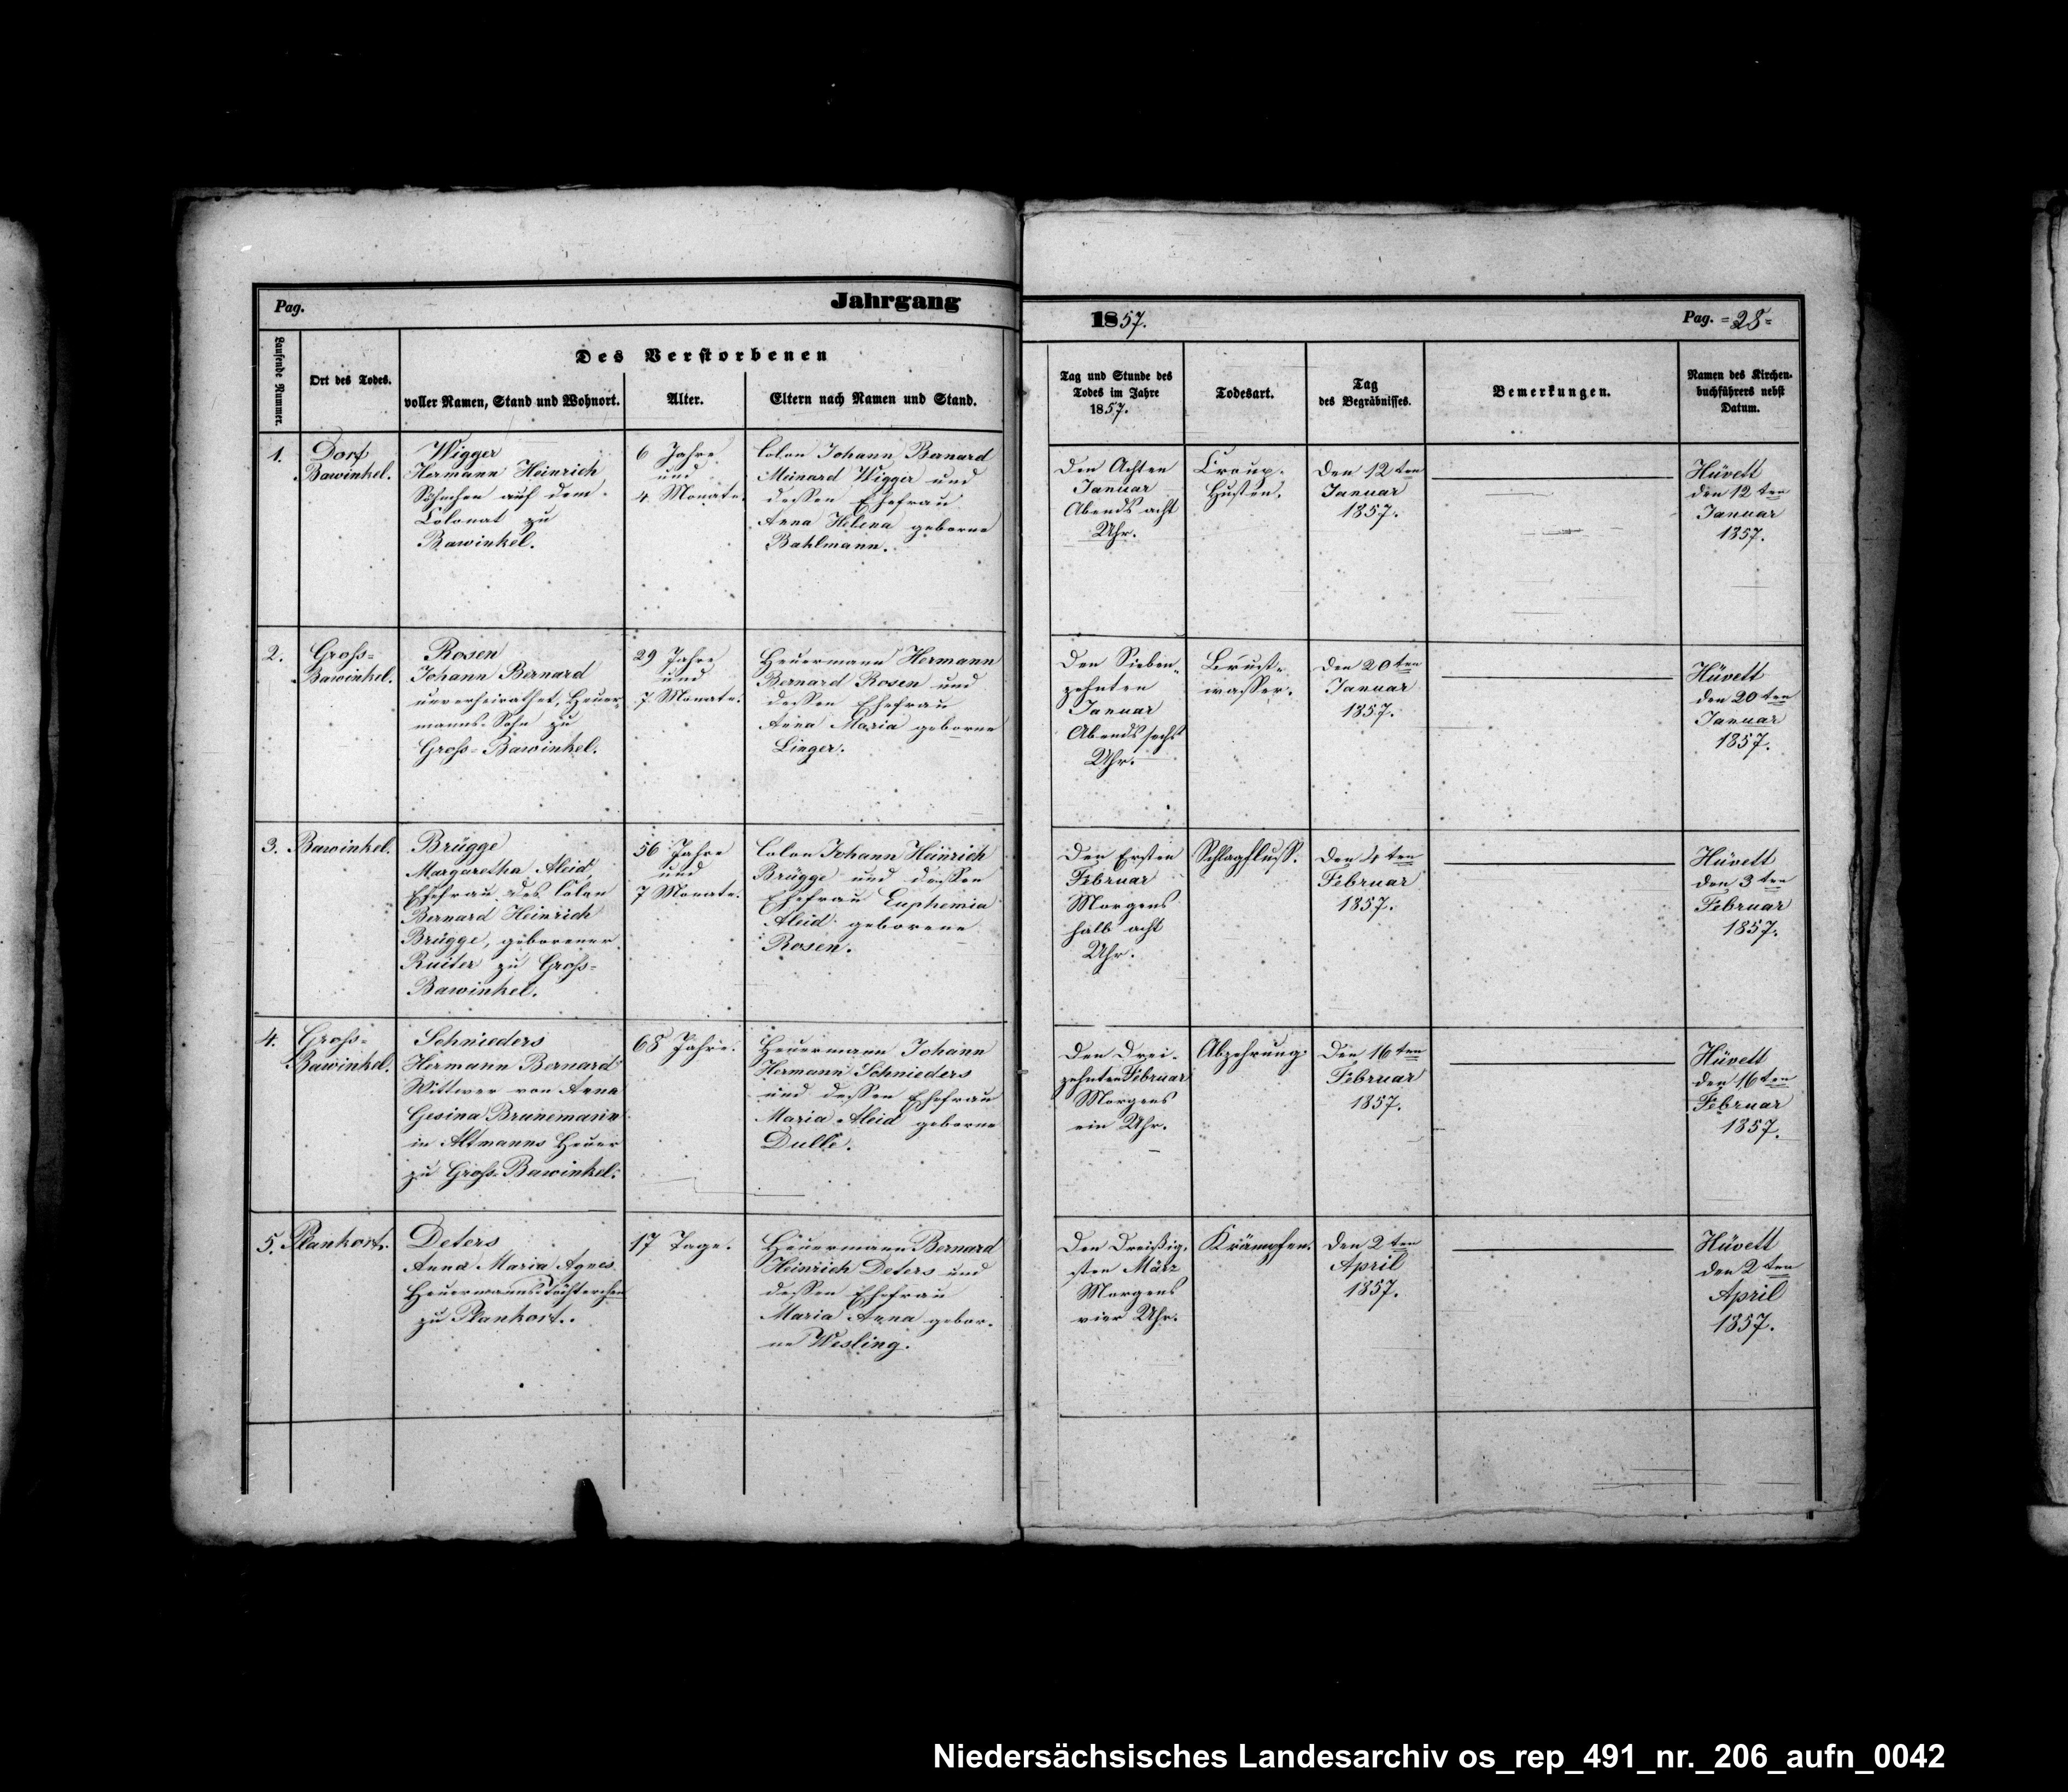 Pag.
Jahrgang
1857.
Pag. =28=
Laufende Nummer.
Ort des Todes.
Des Verstorbenen
voller Namen, Stand und Wohnort.
Alter.
Eltern nach Namen und Stand.
Tag und Stunde des
Todes im Jahre
1857.
Todesart.
Tag
des Begräbnisses.
Bemerkungen.
Namen des Kirchen-
buchführers nebst
Datum.
1.
Dorf
Bawinkel.
Wigger
Hermann Heinrich
Söhnchen auf dem
Colonat zu
Bawinkel.
6 Jahre
und
4 Monate.
Colon Johann Bernard
Meinard Wigger und
dessen Ehefrau
Anna Helena geborne
Bahlmann.
Den Achten
Januar
Abends acht
Uhr.
Croup-
Husten.
Den 12ten
Januar
1857.
Hüvett
den 12ten
Januar
1857.
2.
Groß=
Bawinkel.
Rosen
Johann Bernard
unverheirathet, Heuer-
manns-Sohn zu
Groß=Bawinkel.
29 Jahre
und
7 Monate.
Heuermann Hermann
Bernard Rosen und
dessen Ehefrau
Anna Maria geborne
Linger.
Den Sieben-
zehnten
Januar
Abends sechs
Uhr.
Brust-
wasser.
Den 20ten
Januar
1857.
Hüvett
den 20ten
Januar
1857.
3.
Bawinkel.
Brügge
Margaretha Aleid,
Ehefrau des Colon
Bernard Heinrich
Brügge, geborener
Ruiter zu Groß=
Bawinkel.
56 Jahre
und
7 Monate.
Colon Johann Heinrich
Brügge und dessen
Ehefrau Euphemia
Aleid geborene
Rosen.
Den Ersten
Februar
Morgens
halb acht
Uhr.
Schlagfluß.
Den 4ten
Februar
1857.
Hüvett
den 3ten
Februar
1857.
4.
Groß=
Bawinkel.
Schnieders
Hermann Bernard
Wittwer von Anna
Gesina Brunemann
in Altmanns Heuer
zu Groß-Bawinkel.
68 Jahre.
Heuermann Johann
Hermann Schnieders
und dessen Ehefrau
Maria Aleid geborne
Dulle.
Den Drei-
zehnten Februar
Morgens
ein Uhr.
Abzehrung.
Den 16ten
Februar
1857.
Hüvett
den 16ten
Februar
1857.
5.
Plankort.
Deters
Anna Maria Agnes
Heuermanns-Töchterchen
zu Plankort.
17 Tage.
Heuermann Bernard
Heinrich Deters und
dessen Ehefrau
Maria Anna gebor-
ne Wesling.
Den Dreißig-
sten März
Morgens
vier Uhr.
Krämpfen.
Den 2ten
April
1857.
Hüvett
den 2ten
April
1857.
Niedersächsisches Landesarchiv os_rep_491_nr._206_aufn_0042